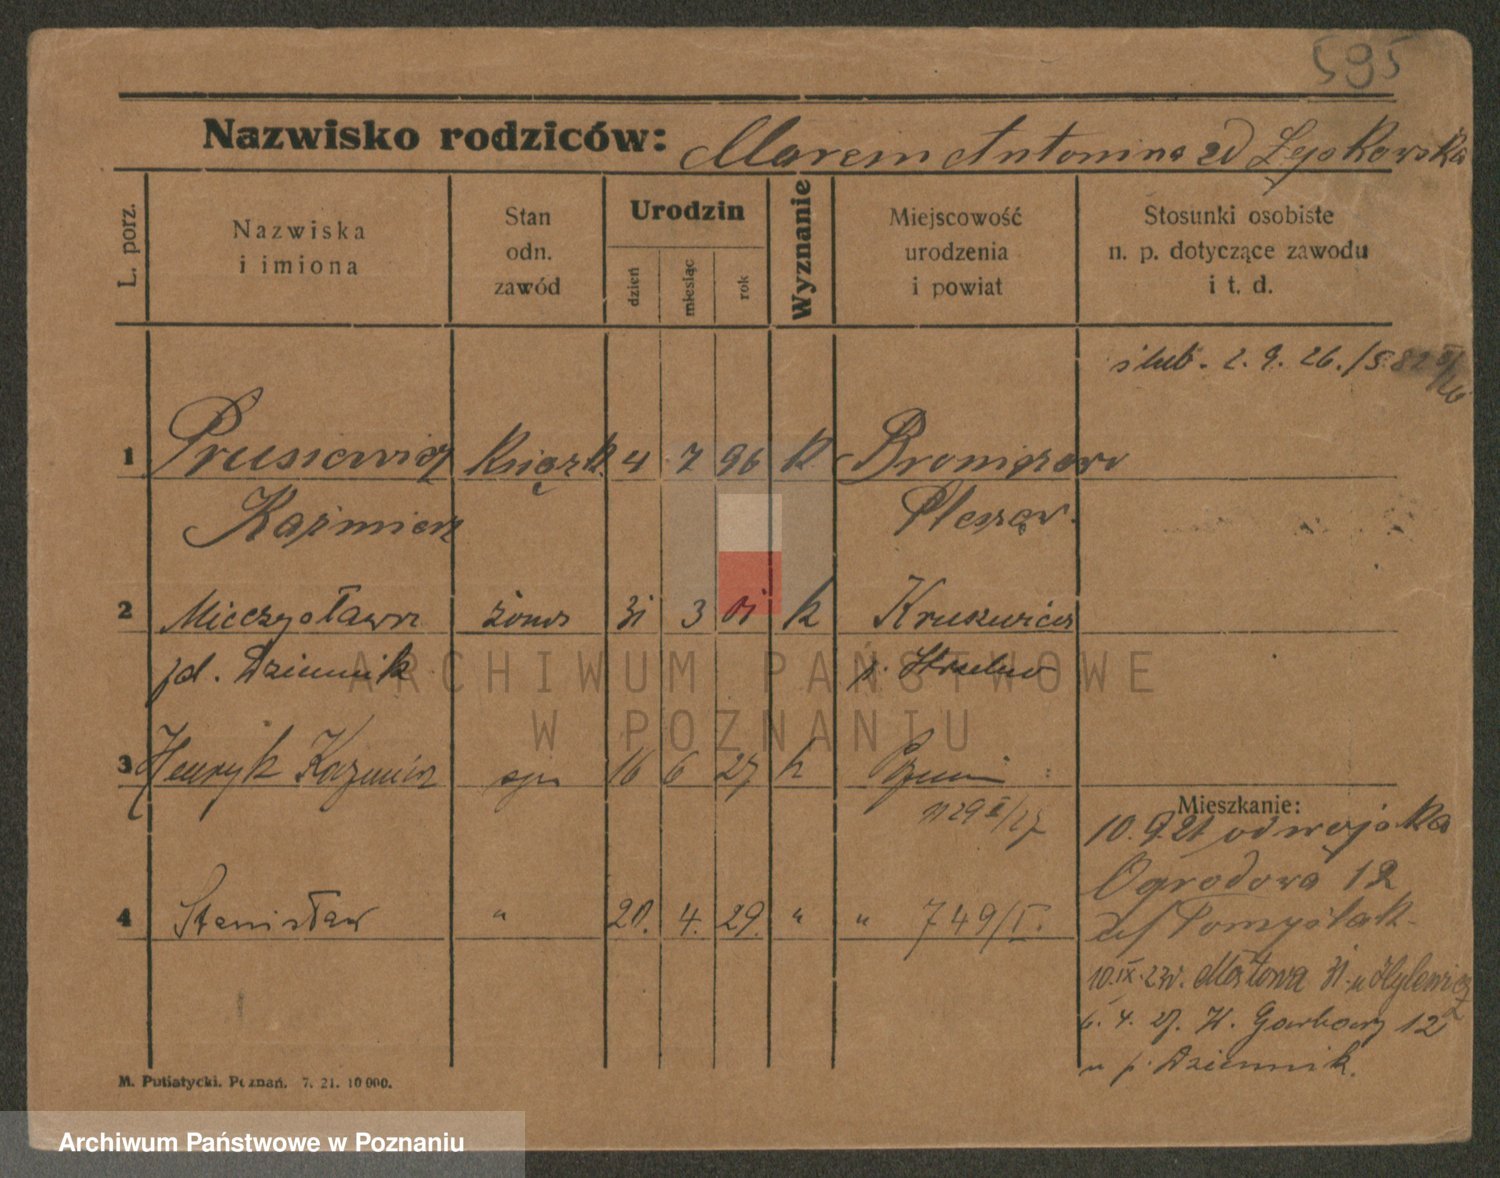 595
Nazwisko rodziców: Marcin Antonina zd Łykowska
L. porz.
Nazwiska
i imiona
Stan
odn.
zawód
Urodzin
dzień
miesiąc
rok
Wyznanie
Miejscowość
urodzenia
i powiat
Stosunki osobiste
n. p. dotyczące zawodu
i t. d.
ślub. 2. 9. 26.
1 Prusiewicz Książk. 4 7 96 k
Kaźmierz Pleszew.
2 Mieczysława żona 31 3 01 k Kruszwica
zd. Dziennik p. Strzelno
3 Henryk Kazimierz syn 16 6 27 k Poznań
n 29 /27
Mieszkanie:
10. 9. 21 od wojska
Ogrodowa 12
4 Stanisław " 20. 4. 29. " " 749/I.
10. IX. 23 Mostowa 31
6. 4. 27. W. Garbary 12
u p. Dziennik.
M. Putiatycki. Poznań. 7. 21. 10 000.
ARCHIWUM PAŃSTWOWE
W POZNANIU
Archiwum Państwowe w Poznaniu